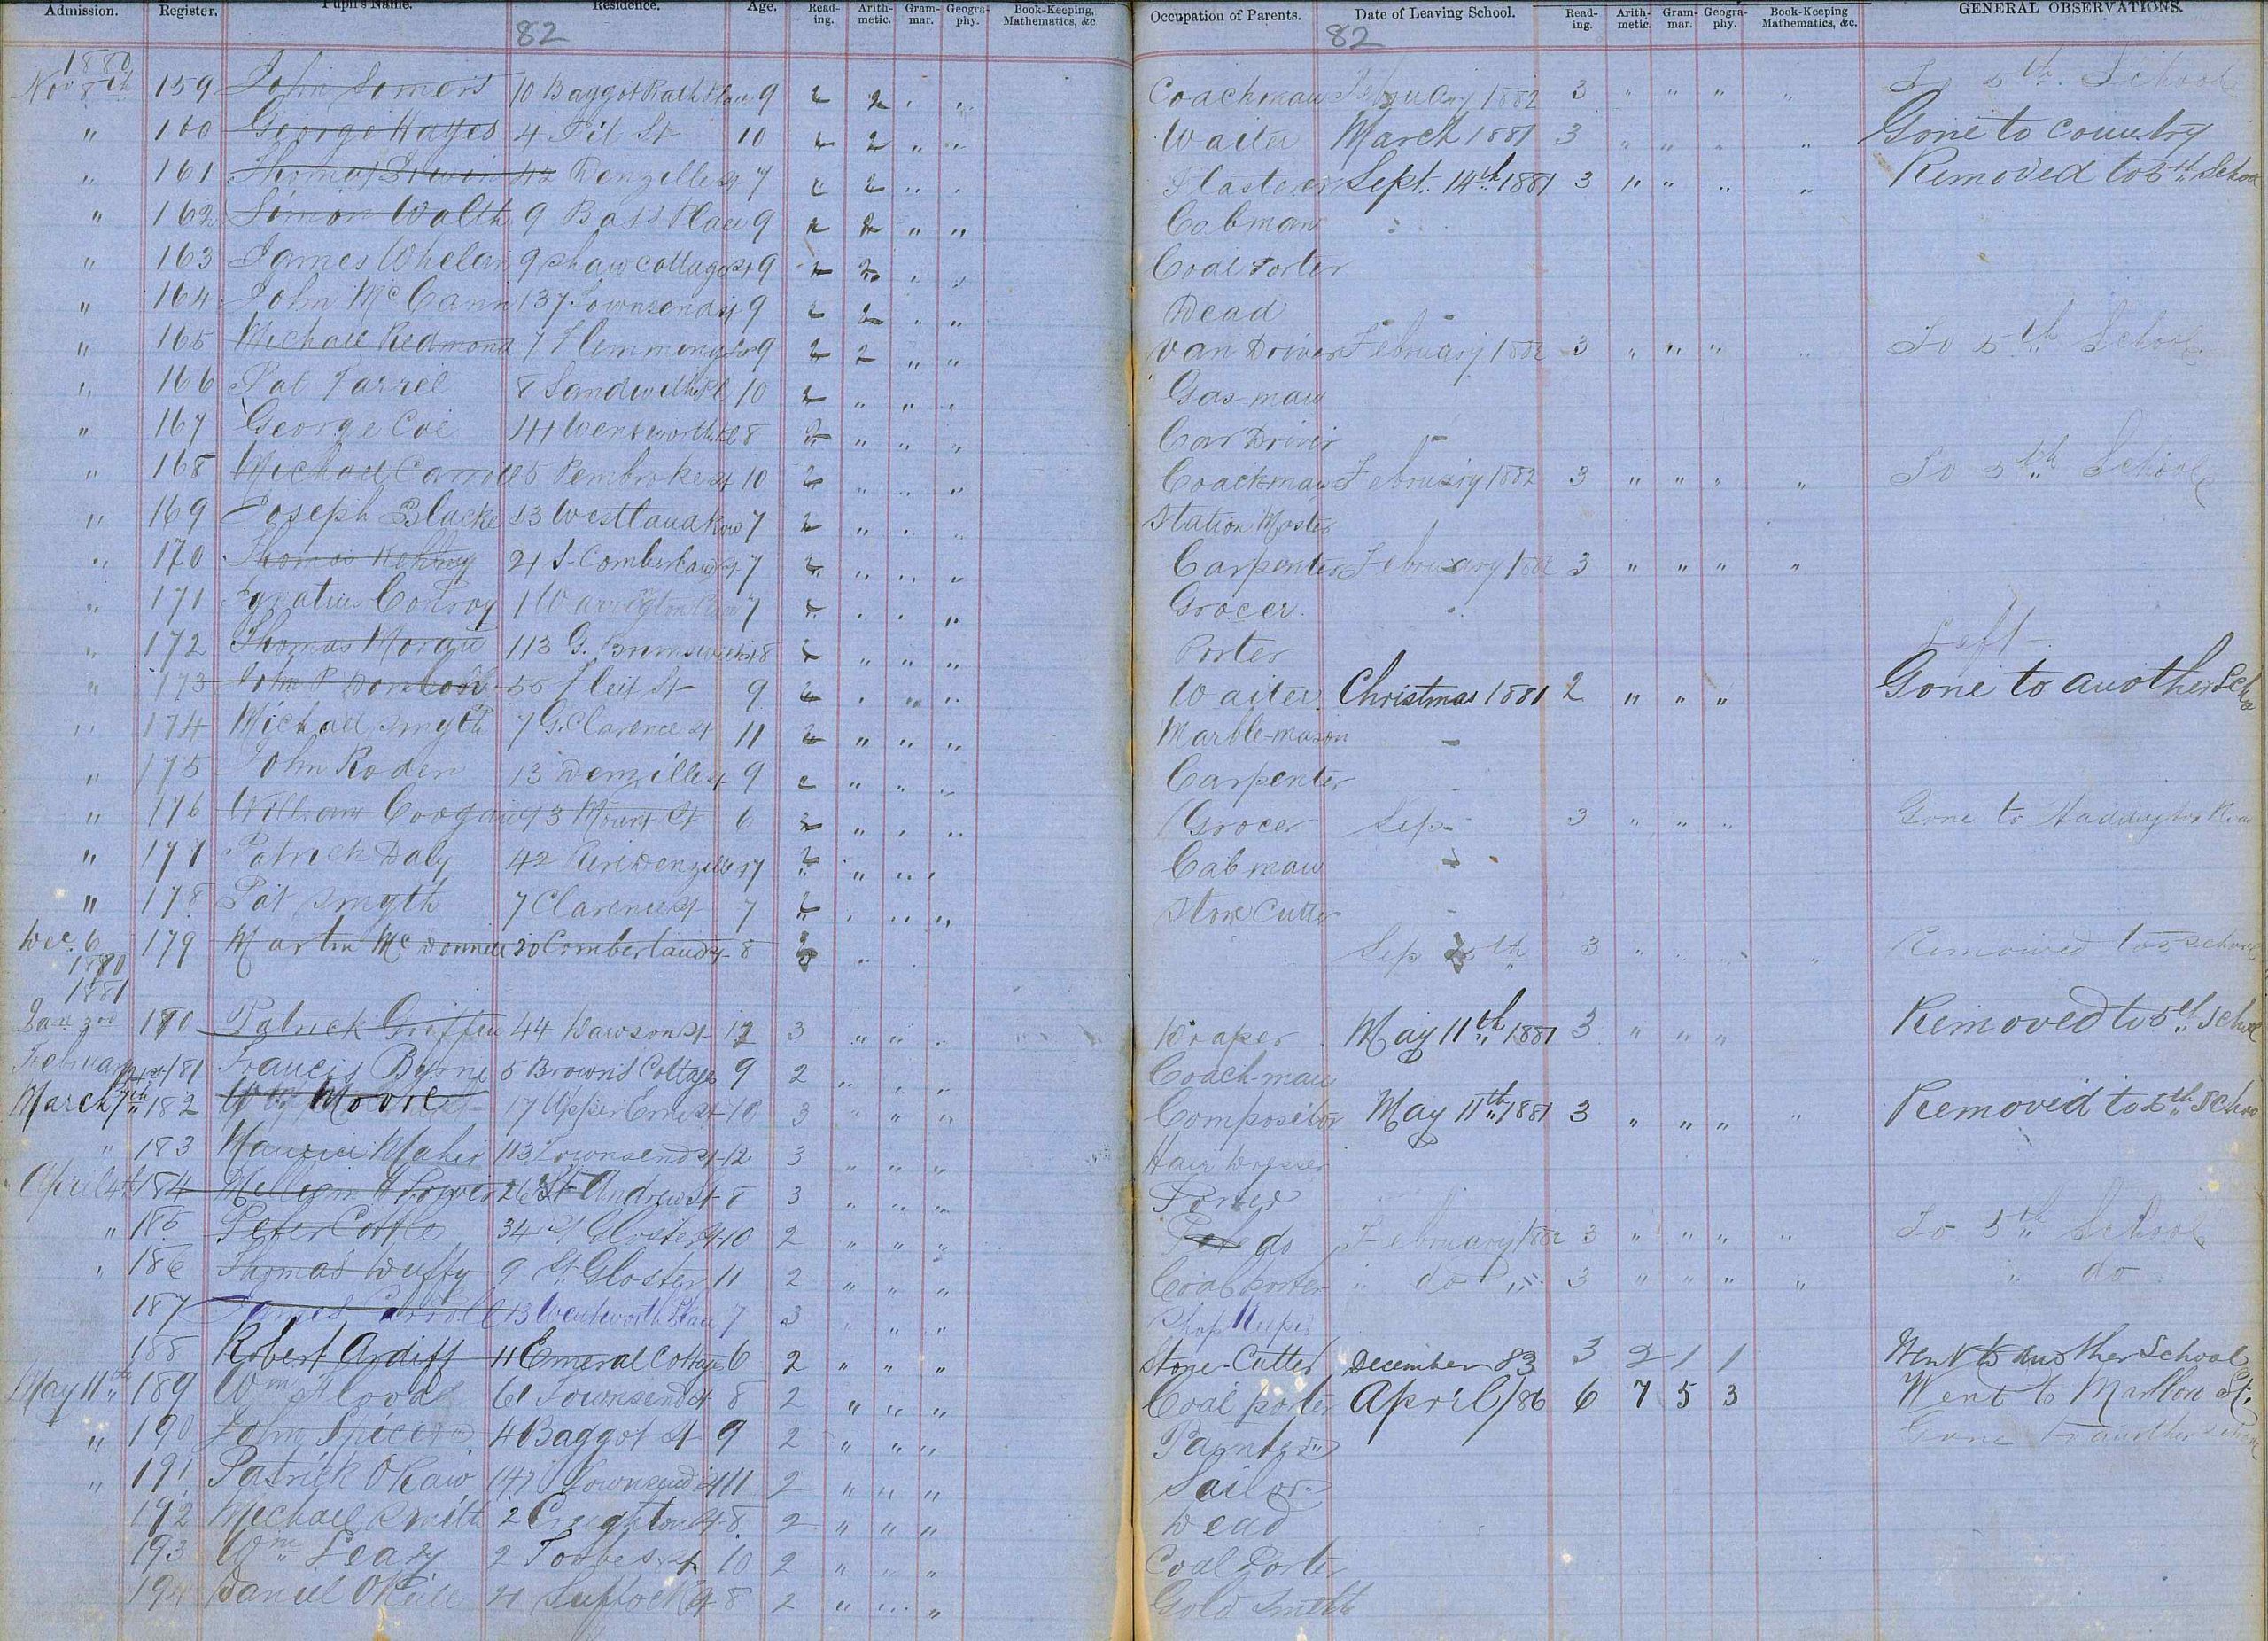 Admission. Register. Pupil's Name. Residence. Age. Read-ing. Arith-metic. Gram-mar. Geogra-phy. Book-Keeping, Mathematics, &c Occupation of Parents. Date of Leaving School. Read-ing. Arith-metic. Gram-mar. Geogra-phy. Book-Keeping Mathematics, &c. GENERAL OBSERVATIONS.
82 82
1880
Nov 8th 159 John Somers 10 Baggot Rath Place 9 2 2 " " Coachman February 1882 3 " " " " To 5th School
" 160 George Hayes 4 Pit St 10 2 2 " " Waiter March 1881 3 " " " " Gone to country
" 161 Thomas 42 Denzille St 7 2 2 " " Plasterer Sept. 14th 1881 3 " " " " Removed to 5th School
" 162 Simon Walsh 9 Bass Place 9 2 2 " " Cabman
" 163 James Whelan 9 Shaw Cottages 9 2 2 " " Coal Porter
" 164 John McCann 137 Townsend St 9 2 2 " " Dead -
" 165 Michael Redmond 7 Flemming 9 2 2 " " Van Driver February 1882 3 " " " " To 5th School
" 166 Pat Farrel 8 Sandwith Pl 10 2 " " " Gas-man
" 167 George Coe 41 Wentworth Pl 8 2 " " " Car Driver -
" 168 Michael Carroll 5 Pembroke St 10 2 " " " Coachman February 1882 3 " " " " To 5th School
" 169 Joseph Blacke 53 Westland Row 7 2 " " " Station Master
" 170 Thomas 21 S. Comberland St 7 2 " " " Carpenter February 1882 3 " " " "
" 171 Ignatius Conroy 1 Warrington Place 7 2 " " " Grocer
" 172 Thomas 113 G. Brunswick St 8 2 " " " Porter Left
" 173 John P 55 Fleet St 9 2 " " " Waiter Christmas 1881 2 " " " Gone to another Schoo
" 174 Michael Smyth 7 G. Clarence St 11 2 " " " Marble-mason -
" 175 John Roden 13 Denzille St 9 2 " " " Carpenter
" 176 William Coogan 93 Mount St 6 2 " " " Grocer Sep 3 " " " Gone to Haddington Road
" 177 Patrick Daly 42 Denzille St 7 2 " " " Cabman
" 178 Pat Smyth 7 Clarence St 7 2 " " " Stone Cutter -
Dec. 6 179 Martin McDonnell 20 Comberland St 8 3 " " Sep th 3 " " " " Removed to 5 School
1880
1881
Jan 3rd 180 Patrick Griffen 44 Dawson St 12 3 " " " Draper May 11th 1881 3 " " " Removed to 5th School
February 181 Francis Byrne 5 Browns Cottage 9 2 " " " Coach-man
March 7th 182 Wm Moore 17 Upper Erne St 10 3 " " " Compositor May 11th 1881 3 " " " " Removed to 5th School
" 183 Maurice Maher 113 Townsend St 12 3 " " " Hair Dresser
April 4th 184 William 26 St Andrew St 8 3 " " " Porter
" 185 Peter 34 Gloster St 10 2 " " " do February 1882 3 " " " " To 5th School
" 186 Thomas Duffy 9 St Gloster 11 2 " " " Coal porter " do 3 " " " " " do
187 James Carroll 13 Wentworth Place 7 3 " " " Shop Keeper
188 Robert Ardiff 11 Emeral Cottage 6 2 " " " Stone-Cutter December 83 3 2 1 1 Went to another School
May 11th 189 Wm Flood 61 Townsend St 8 2 " " " Coal porter April/86 6 7 5 3 Went to Marlboro St.
" 190 John Spicer 41 Baggot St 9 2 " " " Painter Gone to another School
" 191 Patrick 147 Townsend St 11 2 " " " Sailor
192 Michael Smith 2 Creighton St 8 2 " " " Dead
193 Wm Leary 2 Forbes St 10 2 " " " Coal Porter
194 Daniel O'Neill 21 Suffock St 8 2 " " " Gold Smith